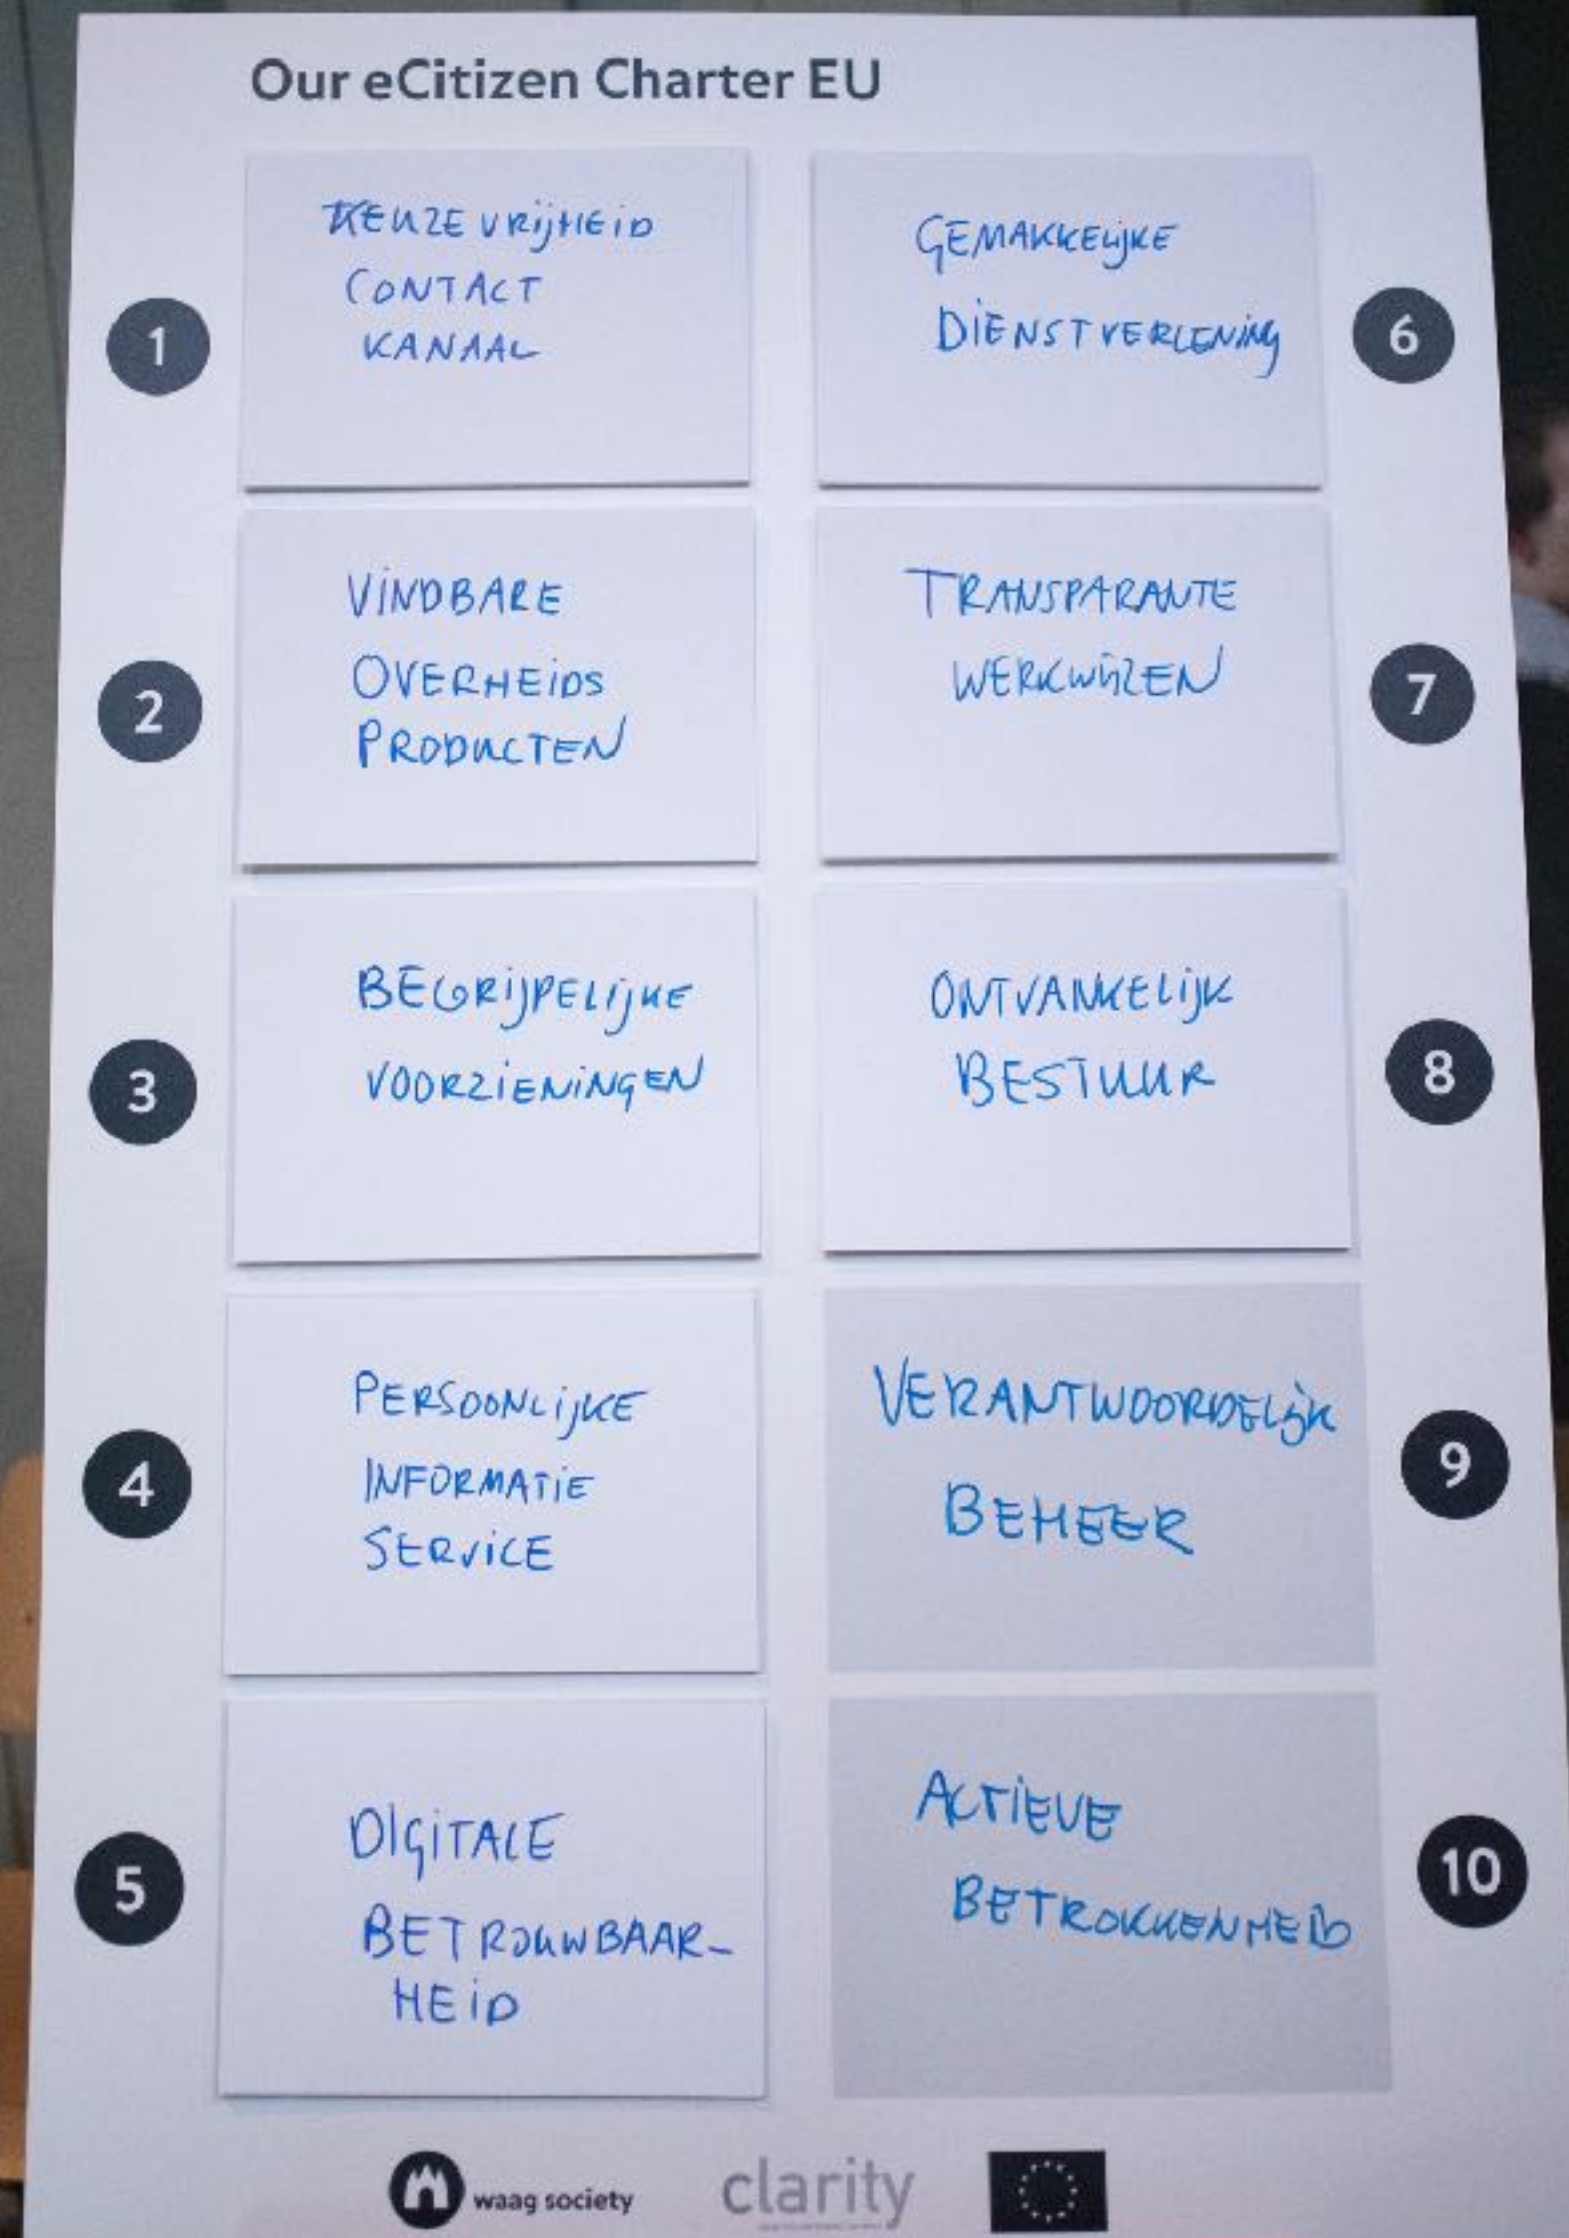 Our eCitizen Charter EU
1
KEUZE VRIJHEID
CONTACT
KANAAL
2
VINDBARE
OVERHEIDS
PRODUCTEN
3
BEGRIJPELIJKE
VOORZIENINGEN
4
PERSOONLIJKE
INFORMATIE
SERVICE
5
DIGITALE
BETROUWBAAR-
HEID
6
GEMAKKELIJKE
DIENSTVERLENING
7
TRANSPARANTE
WERKWIJZEN
8
ONTVANKELIJK
BESTUUR
9
VERANTWOORDELIJK
BEHEER
10
ACTIEVE
BETROKKENHEID
waag society
clarity